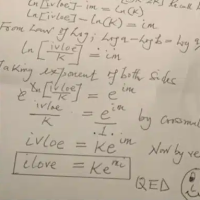 ln[ivloe] - im = ln(K)
ln[ivloe] - ln(K) = im
From Law of Log; Log a - Log b = Log
ln[ivloe/K] = im
Taking exponent of both sides
e^ln[ivloe/K] = e^im
ivloe/K = e^im/1 by cross
ivloe = Ke^im Now by re
ilove = Ke^mi
QED